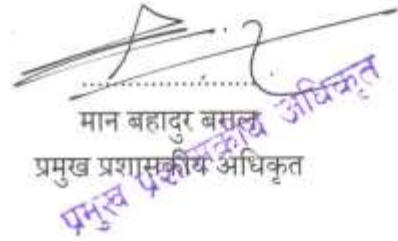 मान बहादुर बस्नेत
प्रमुख प्रशासकीय अधिकृत
प्रमुख प्रशासकीय अधिकृत